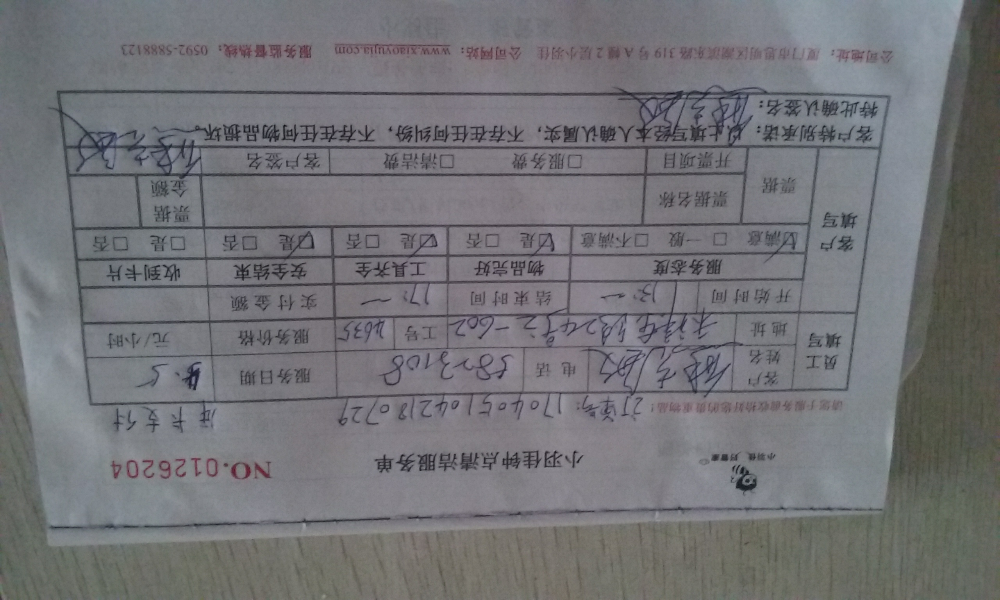 小羽佳, 好管家
小羽佳钟点清洁服务单
NO.0126204
请您于服务前收拾好您的贵重物品！
订单号: 1704051042180729 冲卡支付
员工填写
客户姓名 电话 5823108 服务日期 4.5
地址 2-602 工号 4635 服务价格 元/小时
开始时间 13:一 结束时间 17:一 实付金额
客户填写
服务态度 物品完好 工具齐全 安全结束 收到卡片
☑满意 □一般 □不满意 ☑是 □否 ☑是 □否 ☑是 □否 □是 □否
票据 票据名称 票据金额
开票项目 □服务费 □清洁费 客户签名
客户特别承诺：以上填写经本人确认属实，不存在任何纠纷，不存在任何物品损坏。
特此确认签名：
公司地址：厦门市思明区湖滨东路 319 号 A 幢 2 层小羽佳 公司网站：www.xiaoyujia.com 服务监督热线：0592-5888123